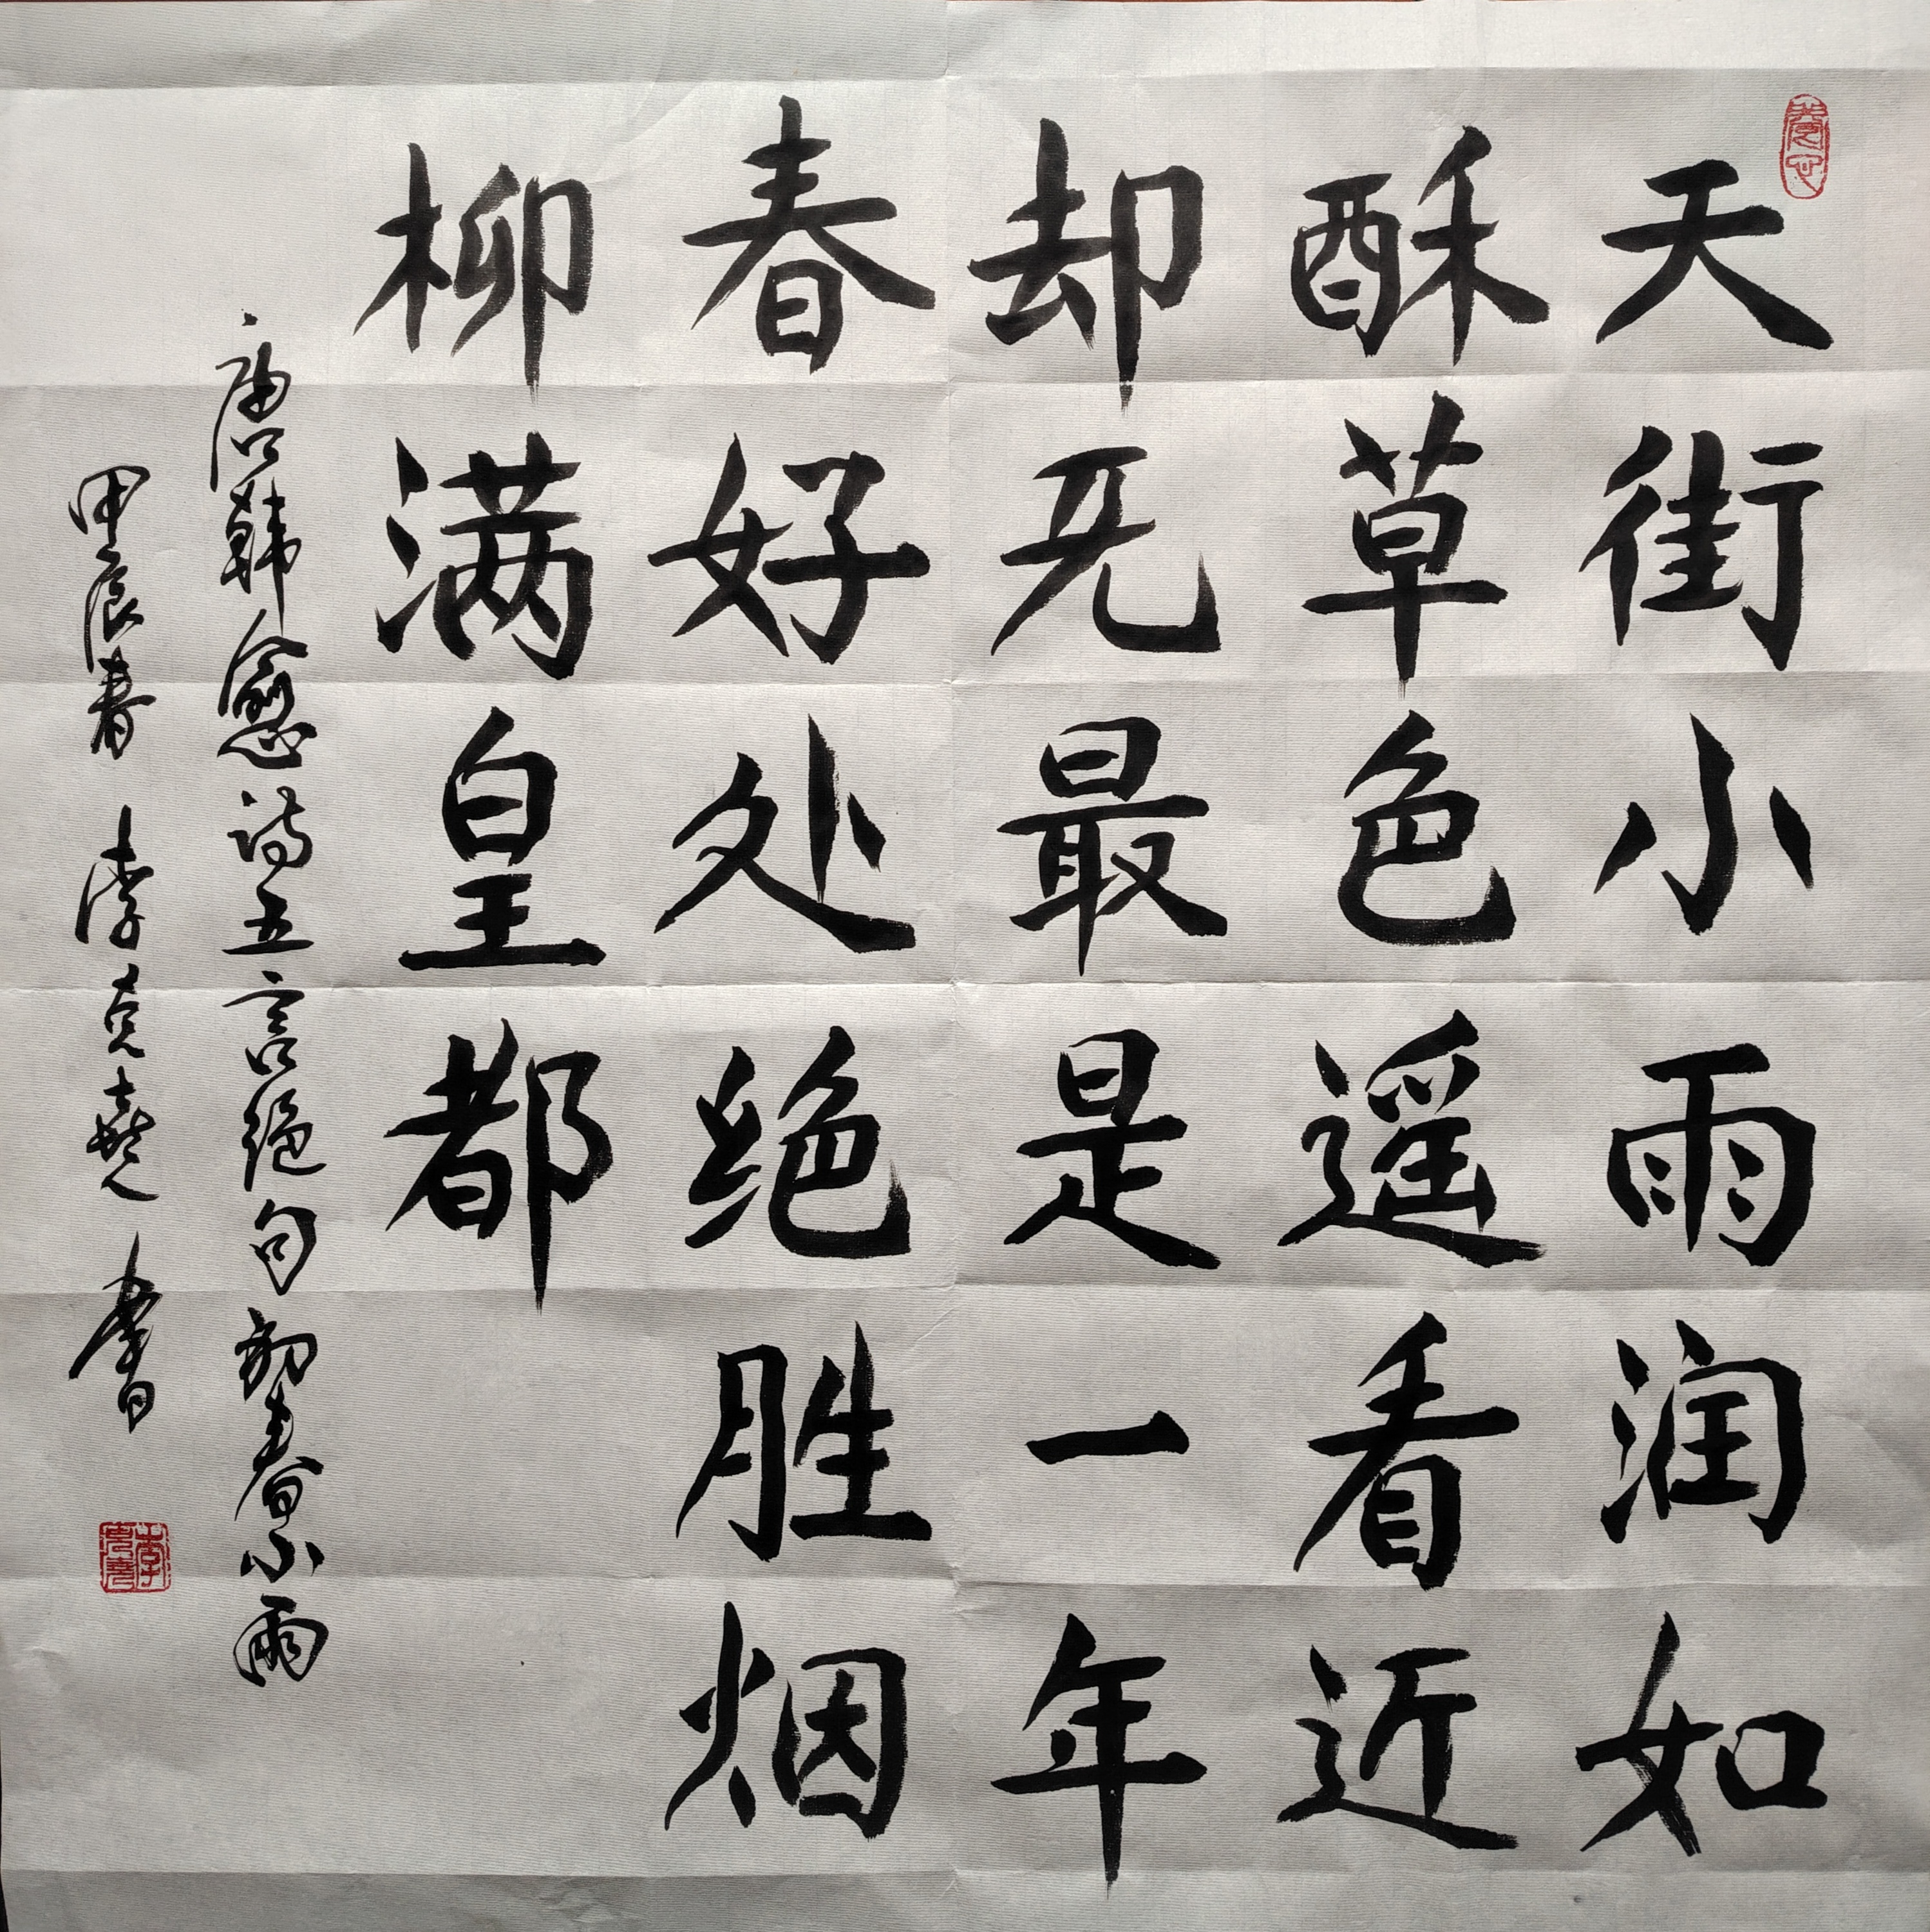 天街小雨润如
酥草色遥看近
却无最是一年
春好处绝胜烟
柳满皇都
唐韩愈诗五言绝句初春小雨
甲辰春 李克堯 書
李克堯